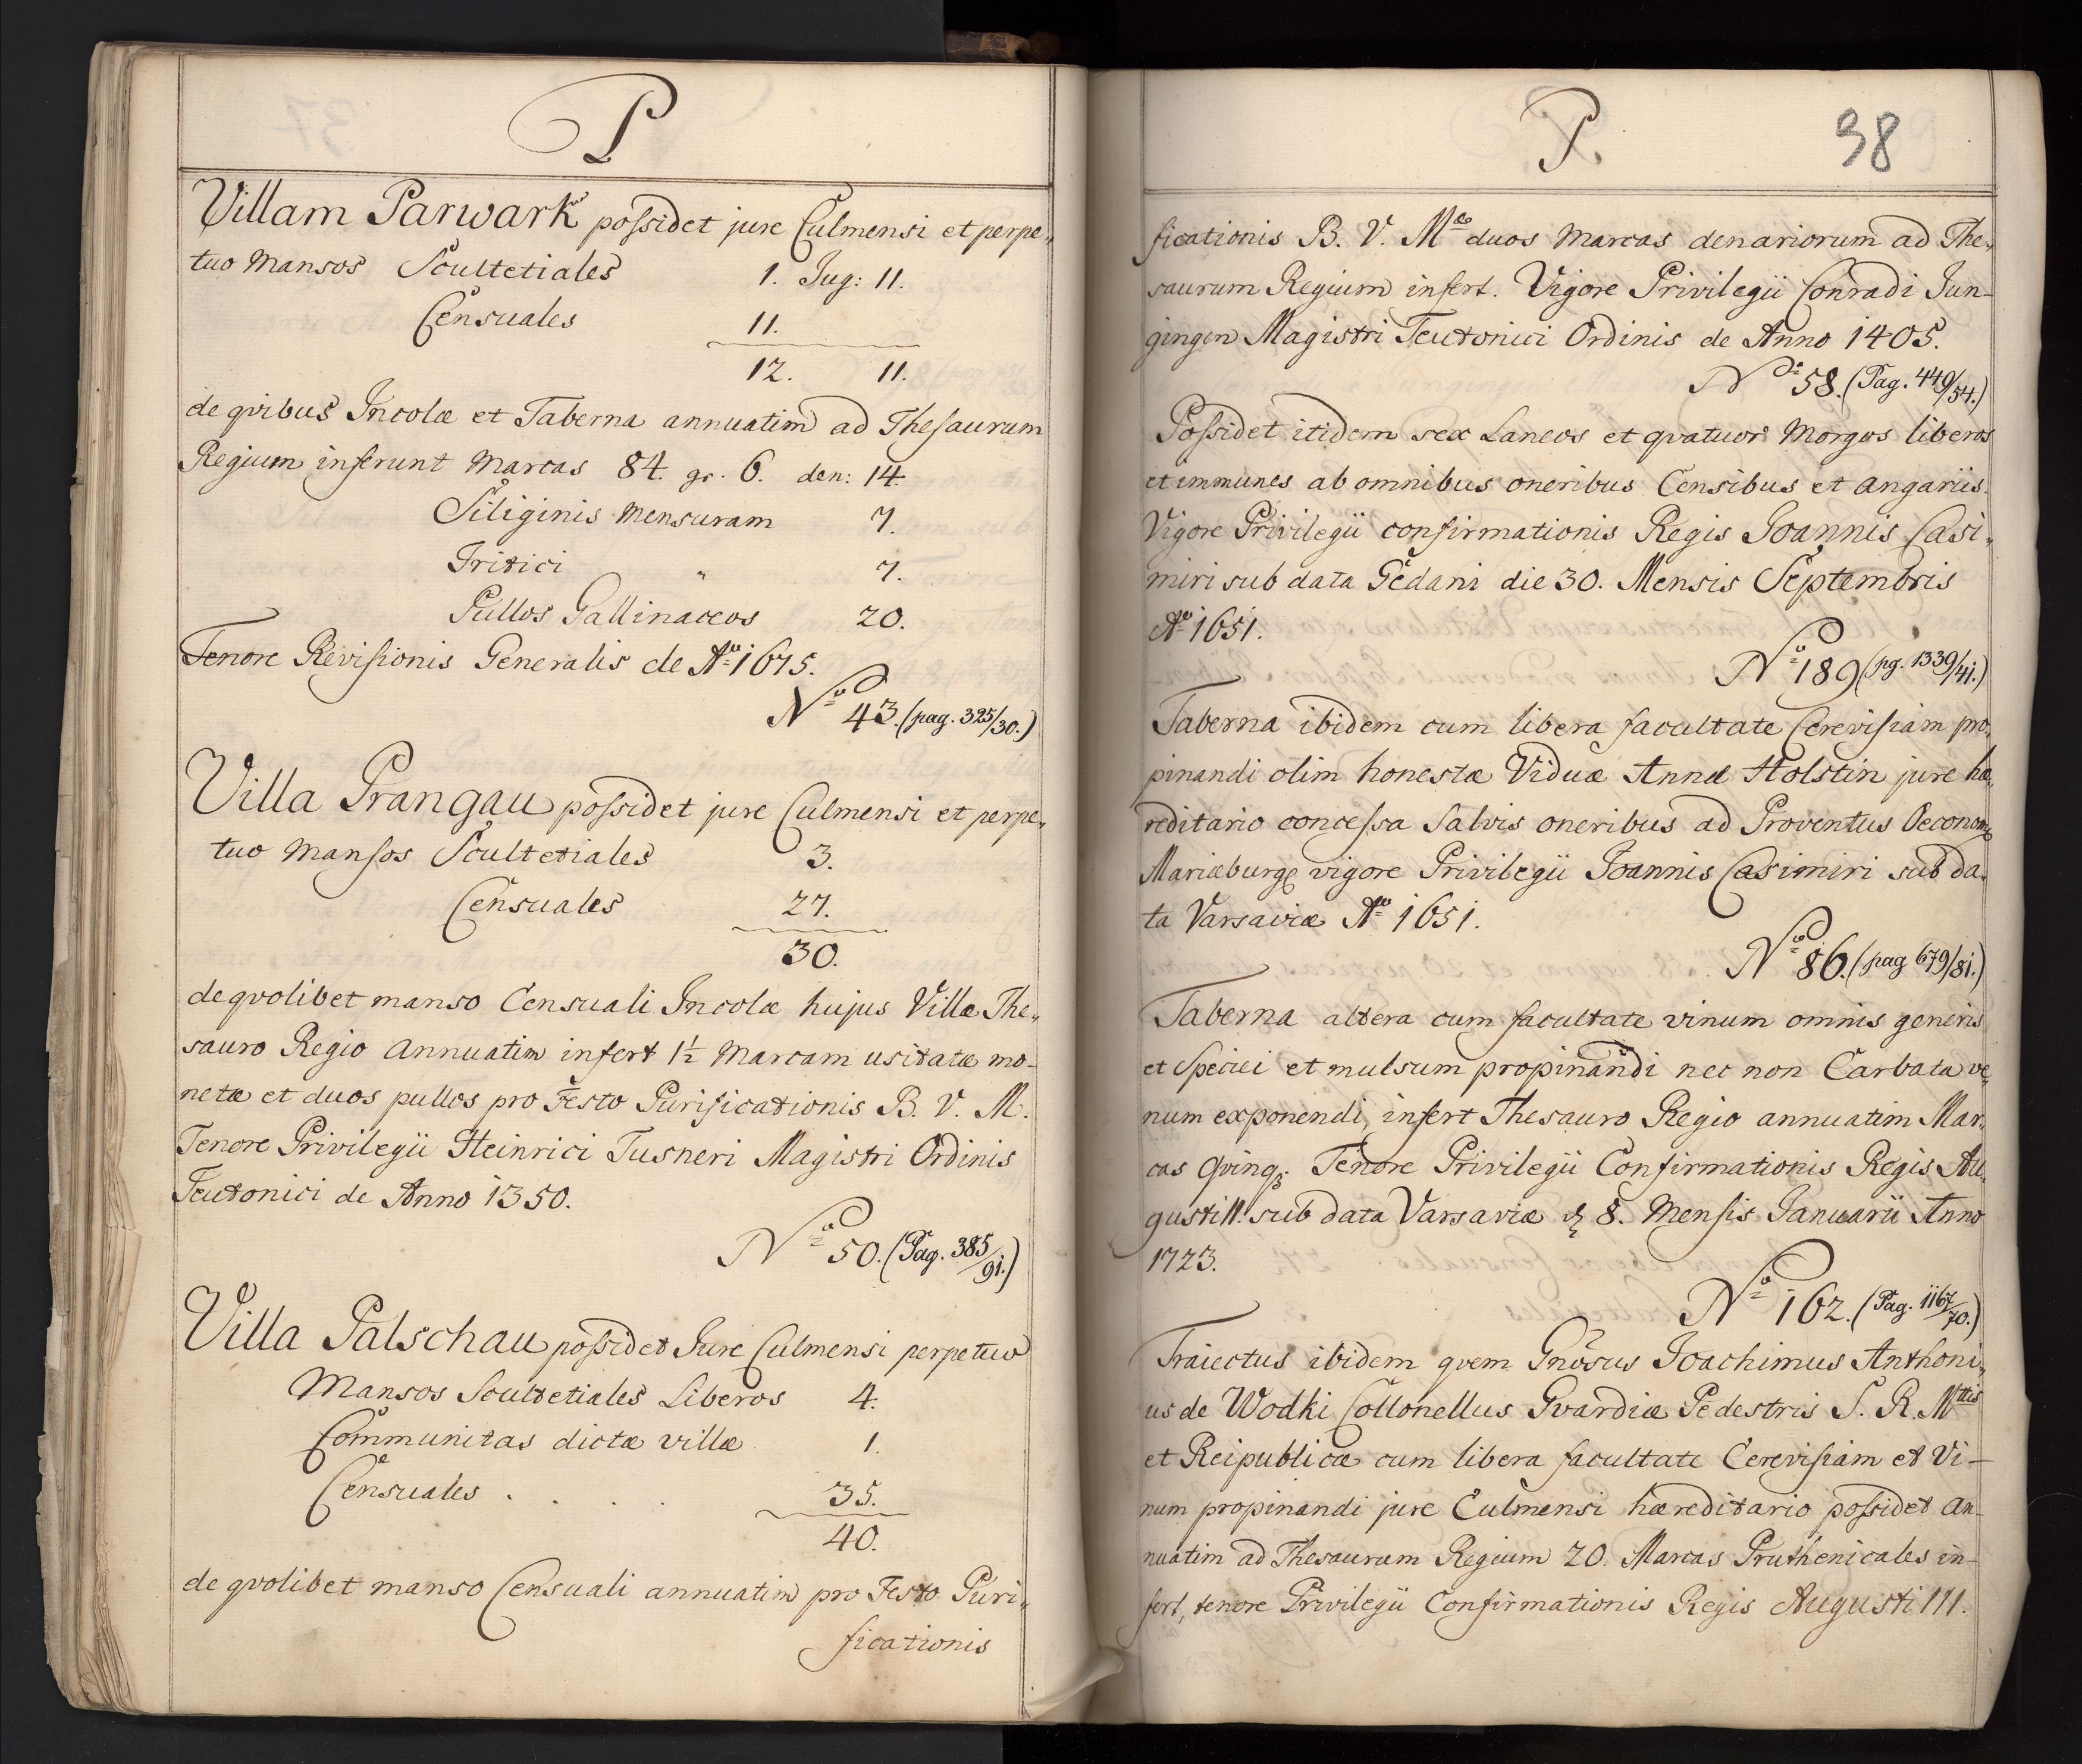 P
Villam Parwark possidet jure Culmensi et perpe„
tuo Mansos Scultetiales 1. Jug: 11.
Censuales 11.
12. 11.
de qvibus Incolæ et Taberna annuatim ad Thesaurum
Regium inferunt Marcas 84. gr. 6. den: 14.
Siliginis Mensuram 7.
Tritici „ 7.
Pullos Gallinaceos 20.
Tenore Revisionis Generalis de Aº 1675.
Nº 43. (pag. 325/30.)
Villa Prangau possidet jure Culmensi et perpe„
tuo Mansos Scultetiales 3.
Censuales 27.
30.
de qvolibet manso Censuali Incolæ hujus Villæ The„
sauro Regio Annuatim infert 1½ Marcam usitatæ mo-
netæ et duos pullos pro Festo Purificationis B. V. M.
Tenore Privilegii Heinrici Tusneri Magistri Ordinis
Teutonici de Anno 1350.
Nº 50. (Pag. 385/91.)
Villa Palschau possidet Jure Culmensi perpetuo
Mansos Scultetiales Liberos 4.
Communitas dictæ villæ 1.
Censuales . . . . 35.
40.
de qvolibet manso Censuali annuatim pro Festo Puri„
ficationis
P. 38
ficationis B. V. Mæ duos Marcas denariorum ad The„
saurum Regium infert. Vigore Privilegii Conradi Jun-
gingen Magistri Teutonici Ordinis de Anno 1405.
Nº 58. (Pag. 449/54.)
Possidet itidem sex Laneos et qvatuor Morgos liberos
et immunes ab omnibus oneribus Censibus et angariis.
Vigore Privilegii confirmationis Regis Joannis Casi„
miri sub data Gedani die 30. Mensis Septembris
Aº 1651.
Nº 189 (pg. 1339/41.)
Taberna ibidem cum libera facultate Cerevisiam pro„
pinandi olim honestæ Viduæ Annæ Holstin jure hæ„
reditario concessa Salvis oneribus ad Proventus Oeconomię
Mariæburgę vigore Privilegii Joannis Casimiri sub da„
ta Varsaviæ Aº 1651.
Nº 86. (pag 679/81.)
Taberna altera cum facultate vinum omnis generis
et Speciei et mulsum propinandi nec non Carbata ve„
num exponendi, infert Thesauro Regio annuatim Mar„
cas Qvinqꝫ Tenore Privilegii Confirmationis Regis Au„
gusti II. sub data Varsaviæ d. 8. Mensis Januarii Anno
1723.
Nº 162. (Pag. 1167/70.)
Traiectus ibidem qvem Gnōsus Joachimus Anthoni„
us de Wodki Collonellus Gvardiæ Pedestris S. R. Mttis
et Reipublicæ cum libera facultate Cerevisiam et Vi-
num propinandi jure Culmensi hæreditario possidet an-
nuatim ad Thesaurum Regium 20. Marcas Pruthenicales in-
fert, tenore Privilegii Confirmationis Regis Augusti III.